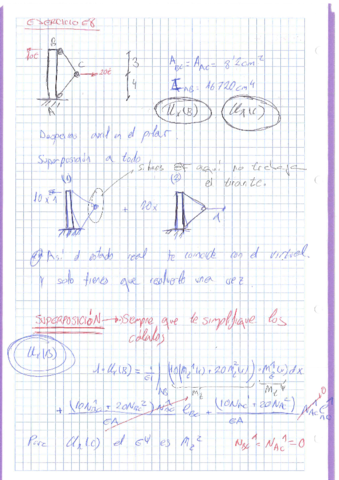 EJERCICIO 8
B
10t
C
20t
3
4
A
A_BC = A_AC = 8'2 cm²
I_AB = 16720 cm⁴
U_x(B) U_x(C)
Superposición a todo
no trabaja
el tirante.
(1) (2)
10 x + 20x
1
Así el estado real te coincide con el virtual
Y solo tienes que resolverlo una vez.
SUPERPOSICIÓN → Siempre que te simplifique los
cálculos
U_x(B)
1·U_x(B) = 1/EI ∫_AB (10 M_z¹(x) + 20 M_z²(x)) · M_z¹(x) dx
+ (10 N_BC¹ + 20 N_BC²) N_BC¹ / EA · l_BC + (10 N_AC¹ + 20 N_AC²) / EA · N_AC¹ 0
Para U_x(C) el es M_z²
N_BC¹ = N_AC¹ = 0